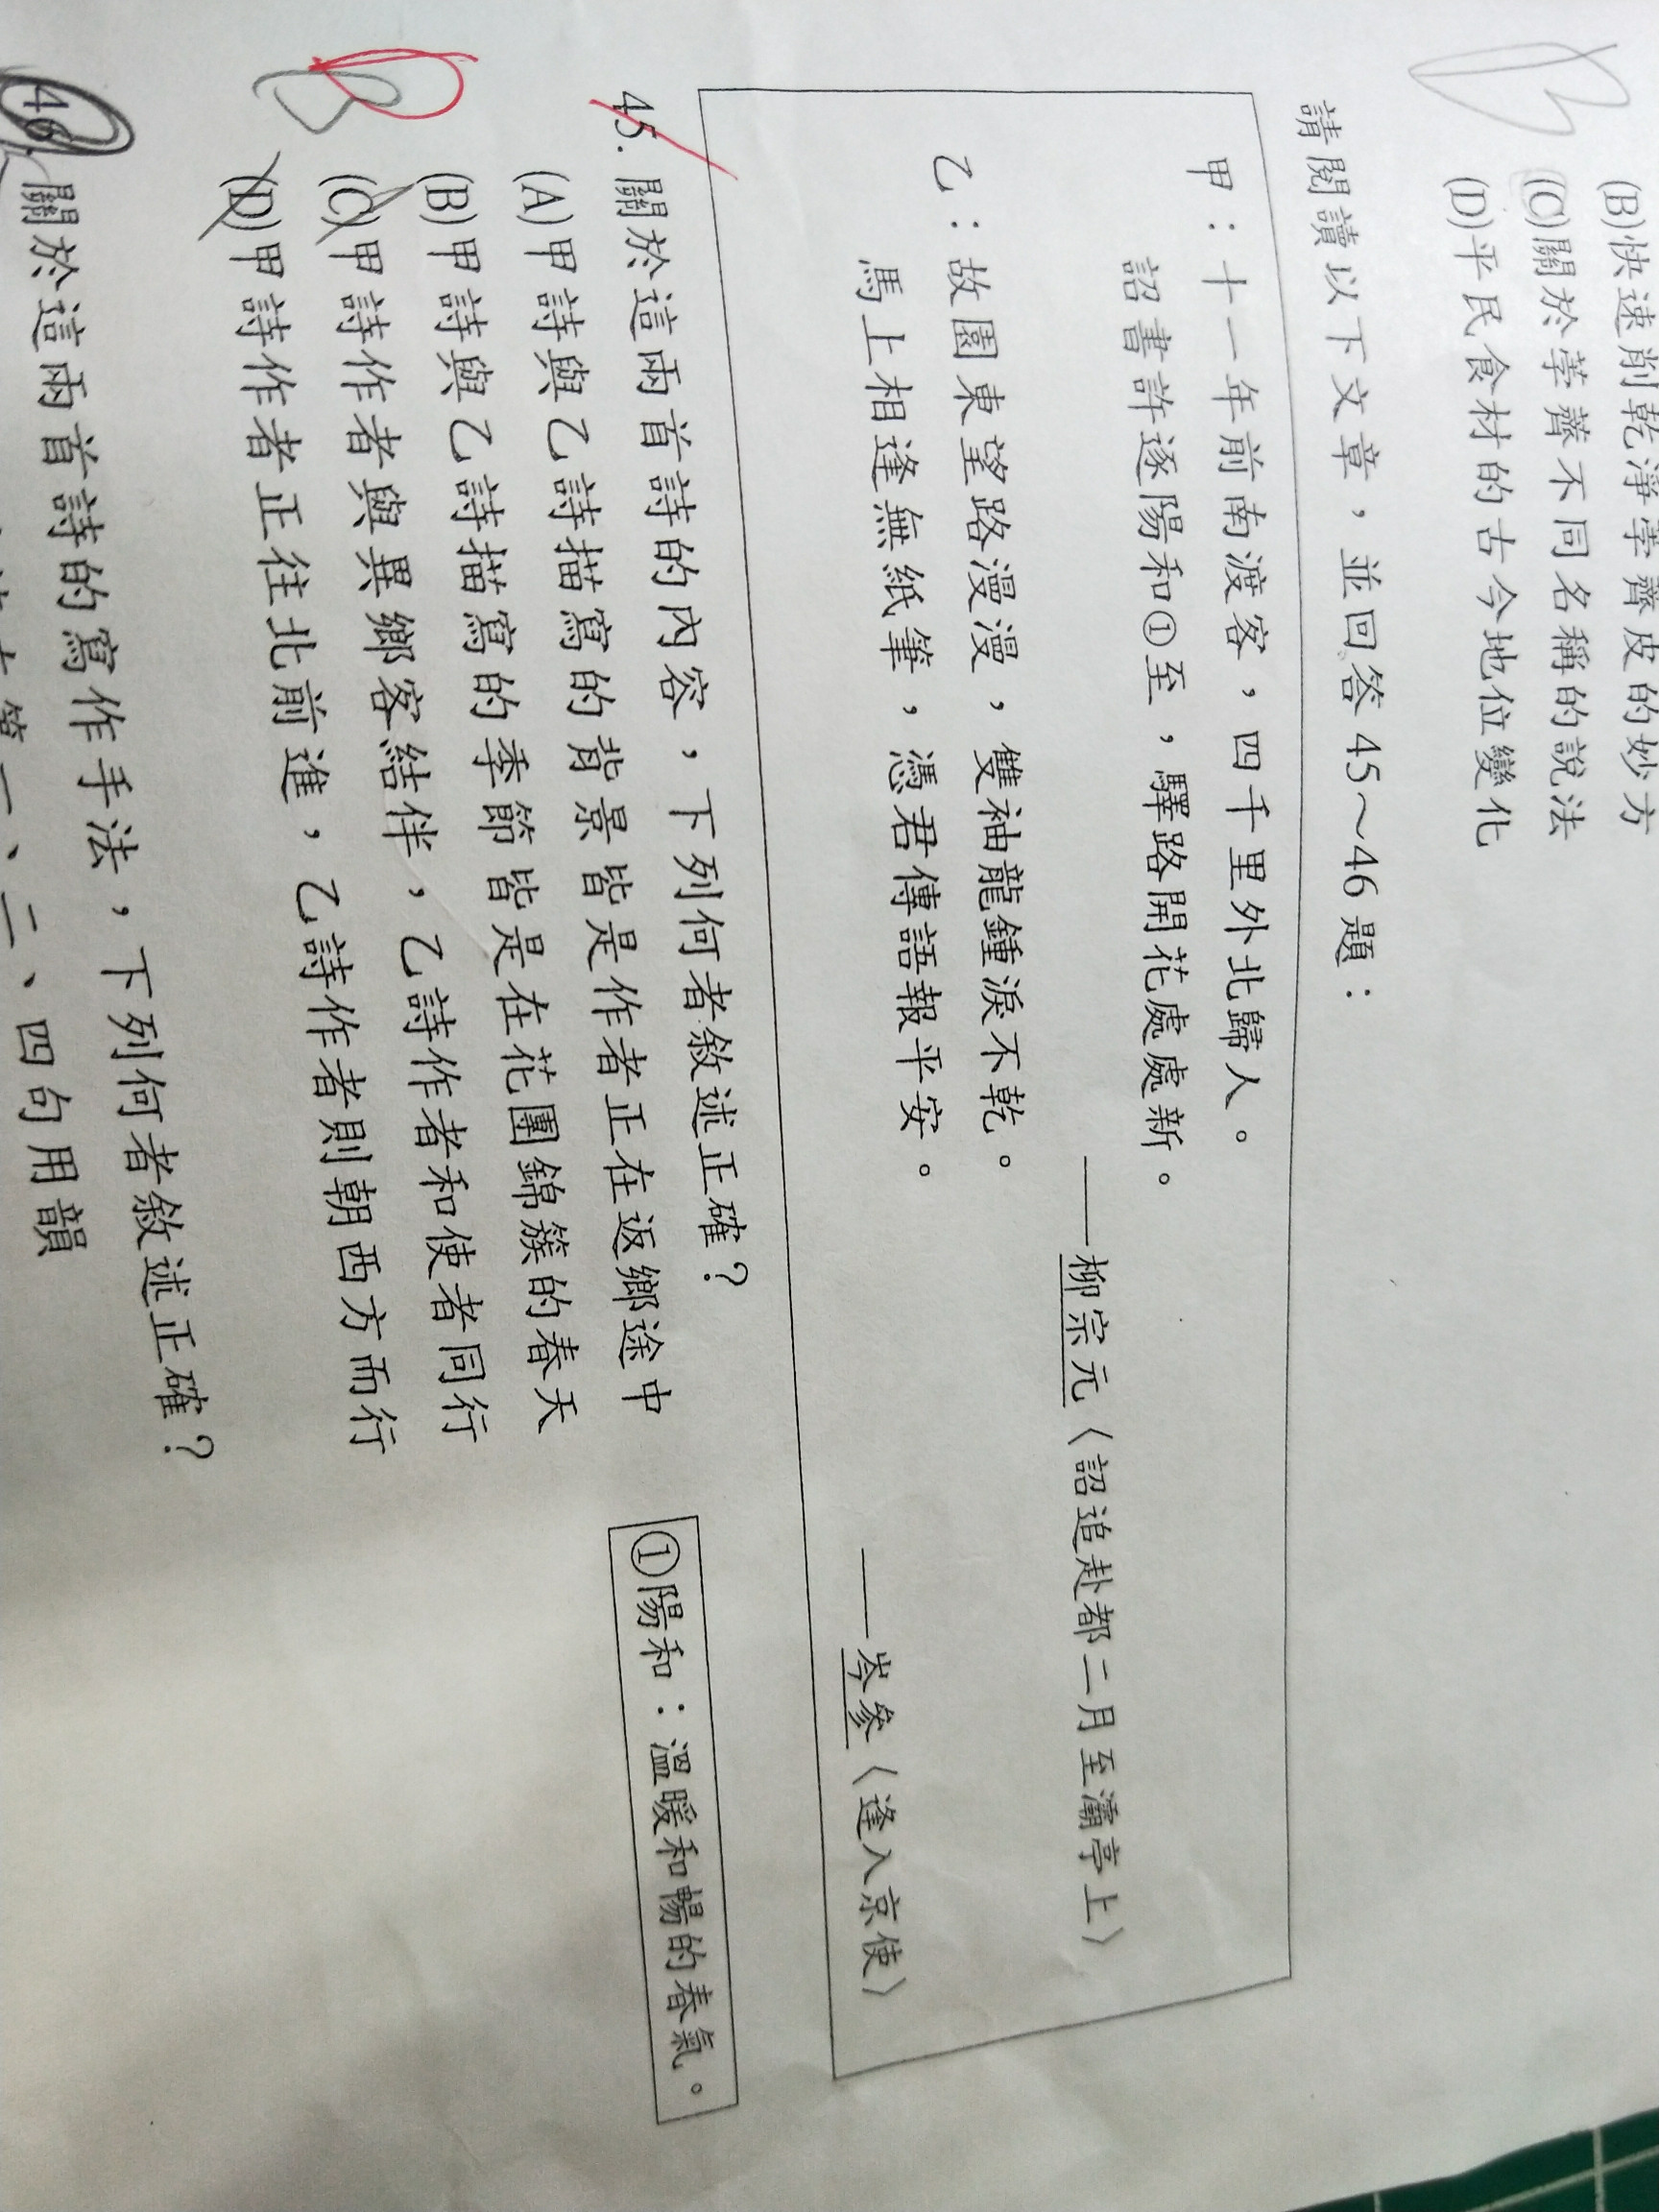 (B)快速削乾淨荸薺皮的妙方
(C)關於荸薺不同名稱的說法
(D)平民食材的古今地位變化
請閱讀以下文章，並回答45～46題：
甲：十一年前南渡客，四千里外北歸人。
詔書許逐陽和①至，驛路開花處處新。
——柳宗元〈詔追赴都二月至灞亭上〉
乙：故園東望路漫漫，雙袖龍鍾淚不乾。
馬上相逢無紙筆，憑君傳語報平安。
——岑參〈逢入京使〉
①陽和：溫暖和暢的春氣。
45.關於這兩首詩的內容，下列何者敘述正確？
(A)甲詩與乙詩描寫的背景皆是作者正在返鄉途中
(B)甲詩與乙詩描寫的季節皆是在花團錦簇的春天
(C)甲詩作者與異鄉客結伴，乙詩作者和使者同行
(D)甲詩作者正往北前進，乙詩作者則朝西方而行
46.關於這兩首詩的寫作手法，下列何者敘述正確？
第一、二、四句用韻